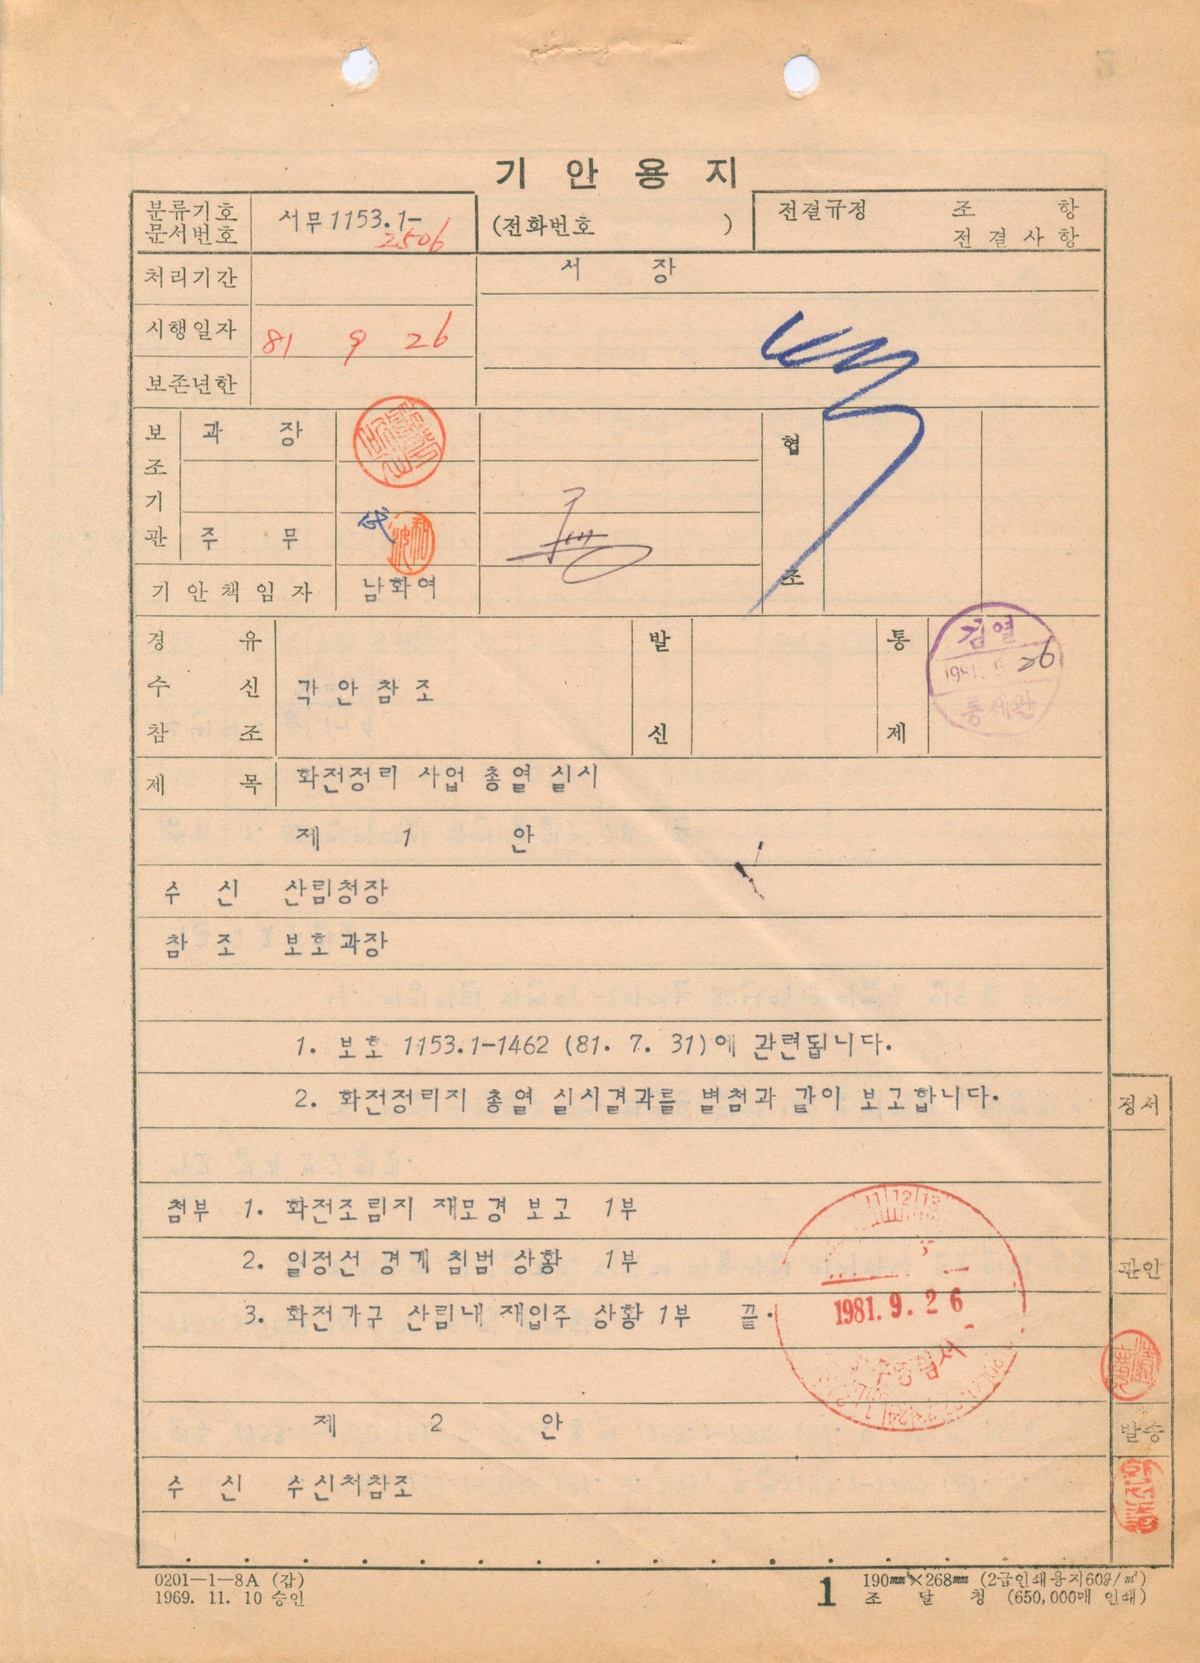 기 안 용 지
분류기호
문서번호
서무1153.1-
2506
(전화번호 )
전결규정 조 항
전결사항
처리기간
서 장
시행일자
81 9 26
보존년한
보조기관
과 장
협조
주 무
기안책임자
남화여
경 유
수 신
참 조
각 안 참 조
발신
통제
검열
1981. 9. 26
통제관
제 목
화전정리 사업 총열 실시
제 1 안
수 신 산림청장
참 조 보호과장
1. 보호 1153.1-1462 (81. 7. 31)에 관련됩니다.
2. 화전정리지 총열 실시결과를 별첨과 같이 보고합니다.
정서
첨부 1. 화전조림지 재모경 보고 1부
2. 일정선 경계 침범 상황 1부
관인
3. 화전가구 산림내 재입주 상황 1부 끝.
1981. 9. 26
제 2 안
발송
수 신 수신처참조
0201—1—8A (갑)
1969. 11. 10 승인
1
190㎜×268㎜ (2급인쇄용지60g/㎡)
조 달 청 (650,000매 인쇄)